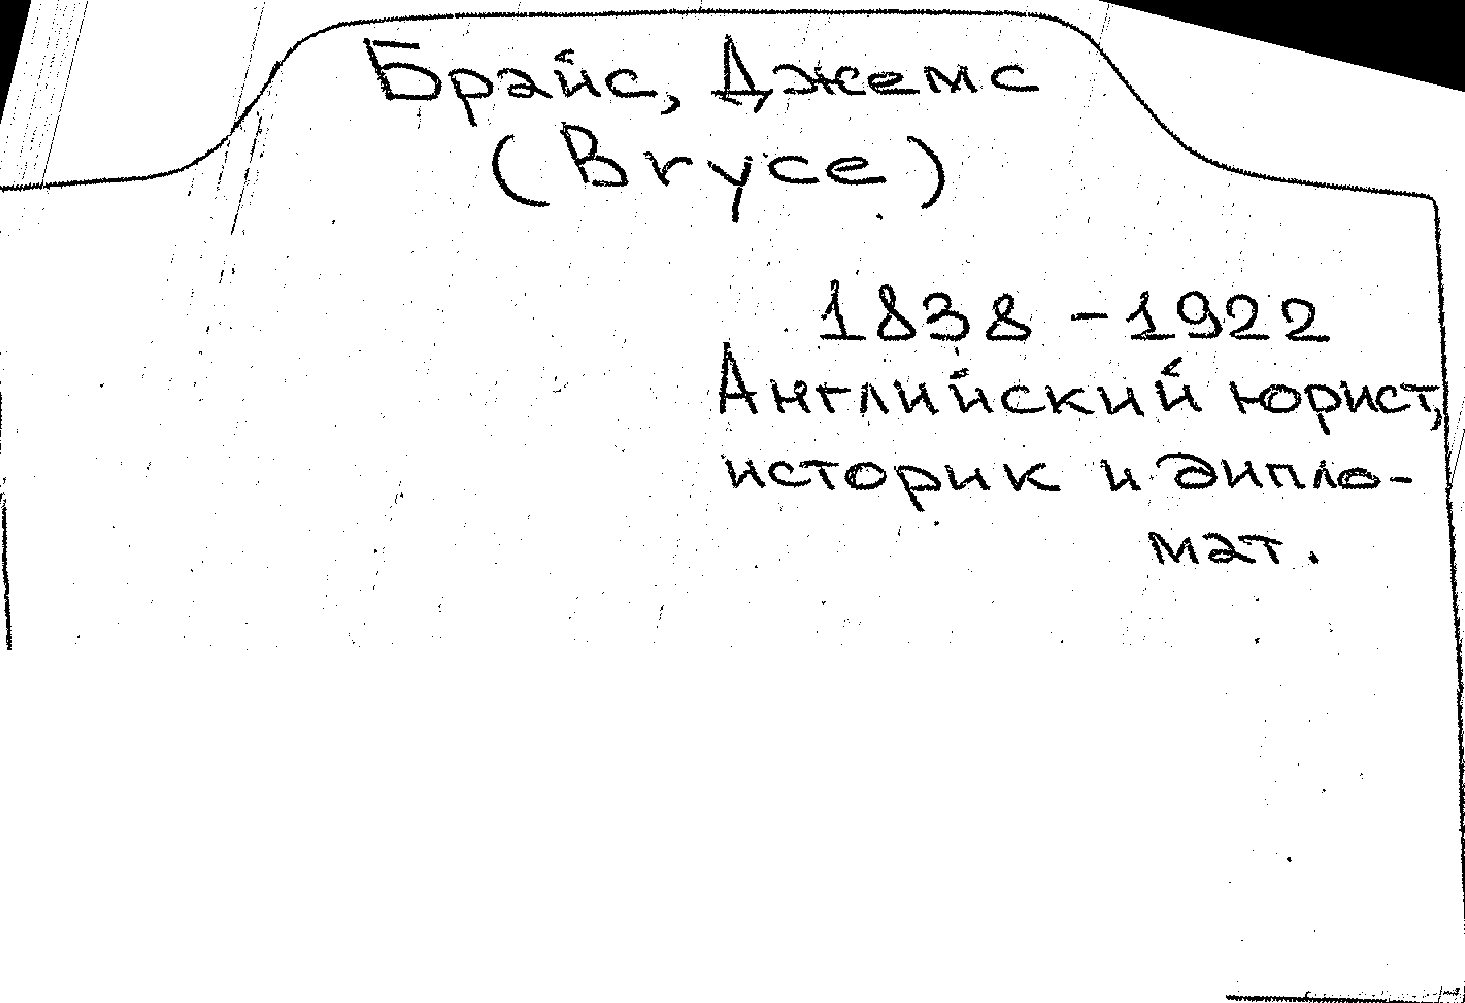 Брайс, Джемс
(Bryce)
1838 - 1922
Английский юрист,
историк и дипло-
мат.